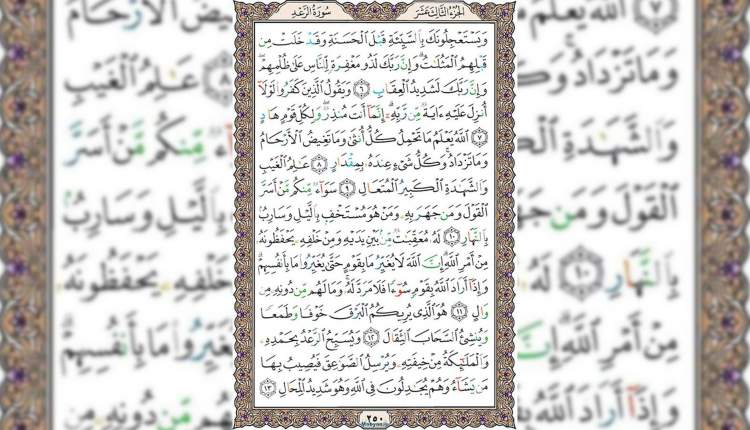 الجزء الثالث عشر
سورة الرعد
وَيَسْتَعْجِلُونَكَ بِٱلسَّيِّئَةِ قَبْلَ ٱلْحَسَنَةِ وَقَدْ خَلَتْ مِن
قَبْلِهِمُ ٱلْمَثُلَٰتُ وَإِنَّ رَبَّكَ لَذُو مَغْفِرَةٍ لِّلنَّاسِ عَلَىٰ ظُلْمِهِمْ
وَإِنَّ رَبَّكَ لَشَدِيدُ ٱلْعِقَابِ ٦ وَيَقُولُ ٱلَّذِينَ كَفَرُوا۟ لَوْلَآ
أُنزِلَ عَلَيْهِ ءَايَةٌ مِّن رَّبِّهِۦٓ إِنَّمَآ أَنتَ مُنذِرٌ وَلِكُلِّ قَوْمٍ هَادٍ
٧ ٱللَّهُ يَعْلَمُ مَا تَحْمِلُ كُلُّ أُنثَىٰ وَمَا تَغِيضُ ٱلْأَرْحَامُ
وَمَا تَزْدَادُ وَكُلُّ شَىْءٍ عِندَهُۥ بِمِقْدَارٍ ٨ عَٰلِمُ ٱلْغَيْبِ
وَٱلشَّهَٰدَةِ ٱلْكَبِيرُ ٱلْمُتَعَالِ ٩ سَوَآءٌ مِّنكُم مَّنْ أَسَرَّ
ٱلْقَوْلَ وَمَن جَهَرَ بِهِۦ وَمَنْ هُوَ مُسْتَخْفٍۭ بِٱلَّيْلِ وَسَارِبٌۢ
بِٱلنَّهَارِ ١٠ لَهُۥ مُعَقِّبَٰتٌ مِّنۢ بَيْنِ يَدَيْهِ وَمِنْ خَلْفِهِۦ يَحْفَظُونَهُۥ
مِنْ أَمْرِ ٱللَّهِ إِنَّ ٱللَّهَ لَا يُغَيِّرُ مَا بِقَوْمٍ حَتَّىٰ يُغَيِّرُوا۟ مَا بِأَنفُسِهِمْ
وَإِذَآ أَرَادَ ٱللَّهُ بِقَوْمٍ سُوٓءًا فَلَا مَرَدَّ لَهُۥ وَمَا لَهُم مِّن دُونِهِۦ مِن
وَالٍ ١١ هُوَ ٱلَّذِى يُرِيكُمُ ٱلْبَرْقَ خَوْفًا وَطَمَعًا
وَيُنشِئُ ٱلسَّحَابَ ٱلثِّقَالَ ١٢ وَيُسَبِّحُ ٱلرَّعْدُ بِحَمْدِهِۦ
وَٱلْمَلَٰٓئِكَةُ مِنْ خِيفَتِهِۦ وَيُرْسِلُ ٱلصَّوَٰعِقَ فَيُصِيبُ بِهَا
مَن يَشَآءُ وَهُمْ يُجَٰدِلُونَ فِى ٱللَّهِ وَهُوَ شَدِيدُ ٱلْمِحَالِ ١٣
٢٥٠